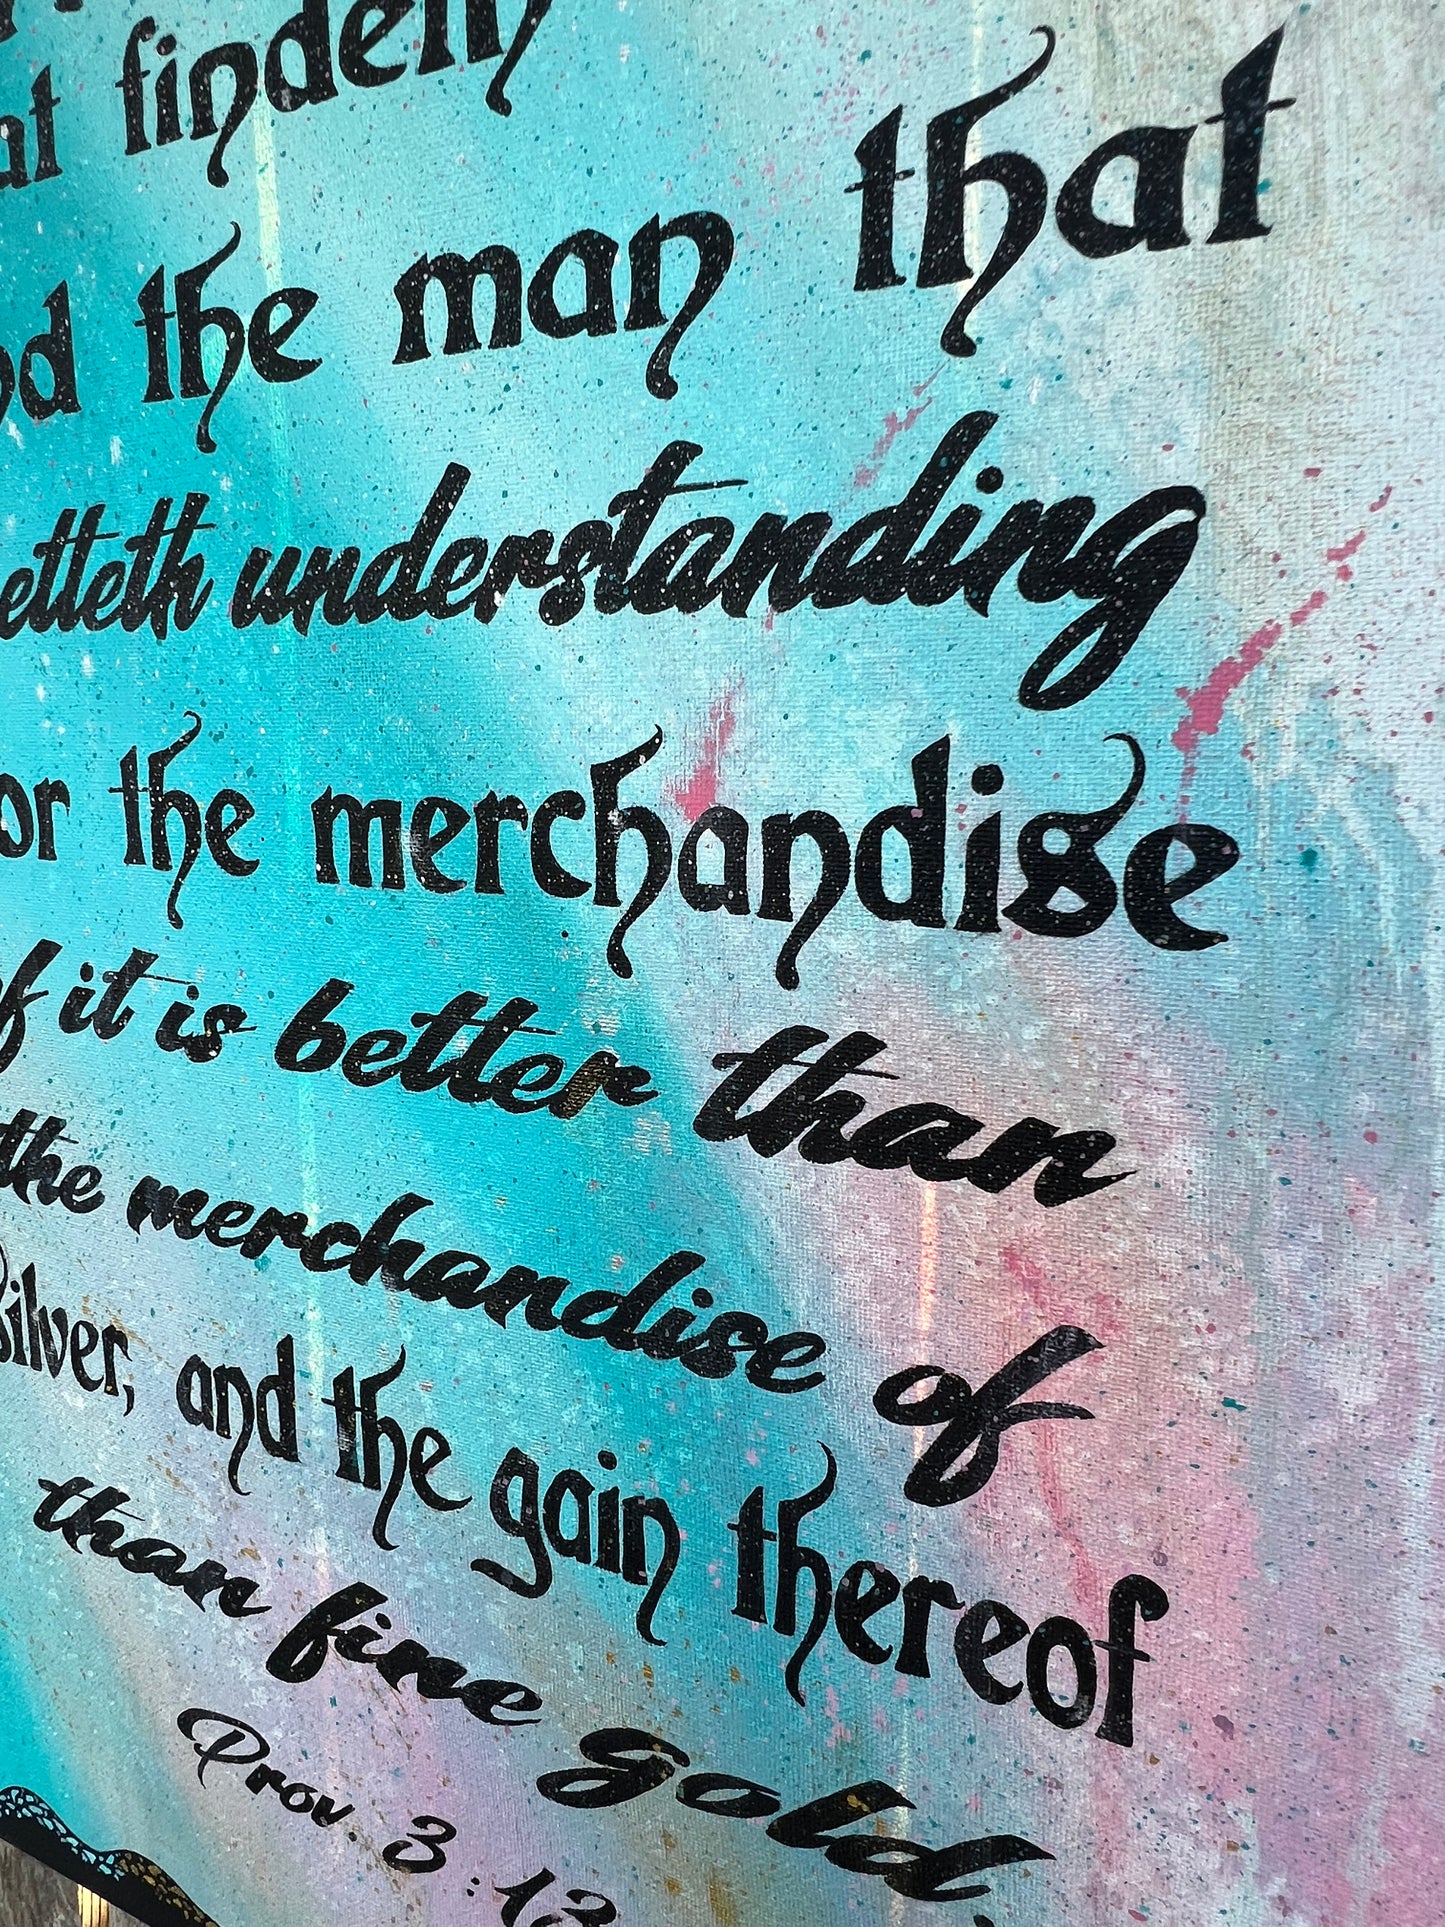 findeth
the man that
understanding
the merchandise
it is better than
the merchandise of
silver, and the gain thereof
than fine gold.
Prov. 3:13